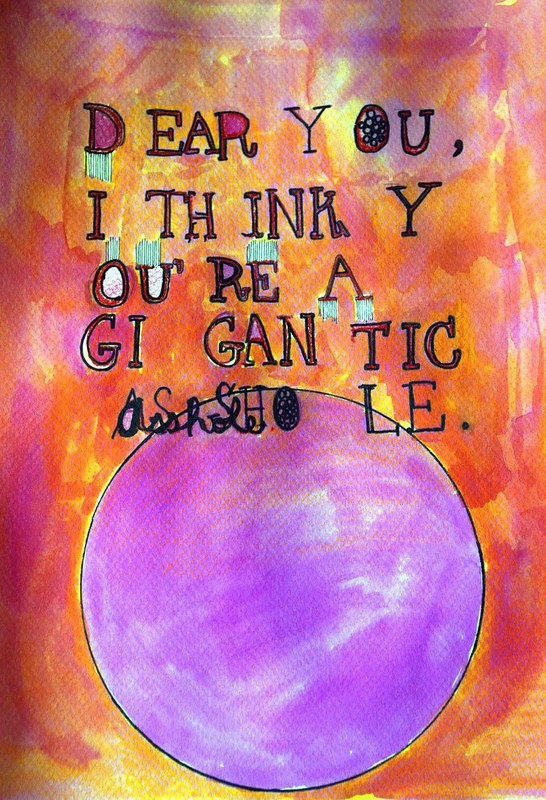 DEAR YOU,
I THINK Y
OU'RE A
GIGANTIC
ASSHOLE.
asshole